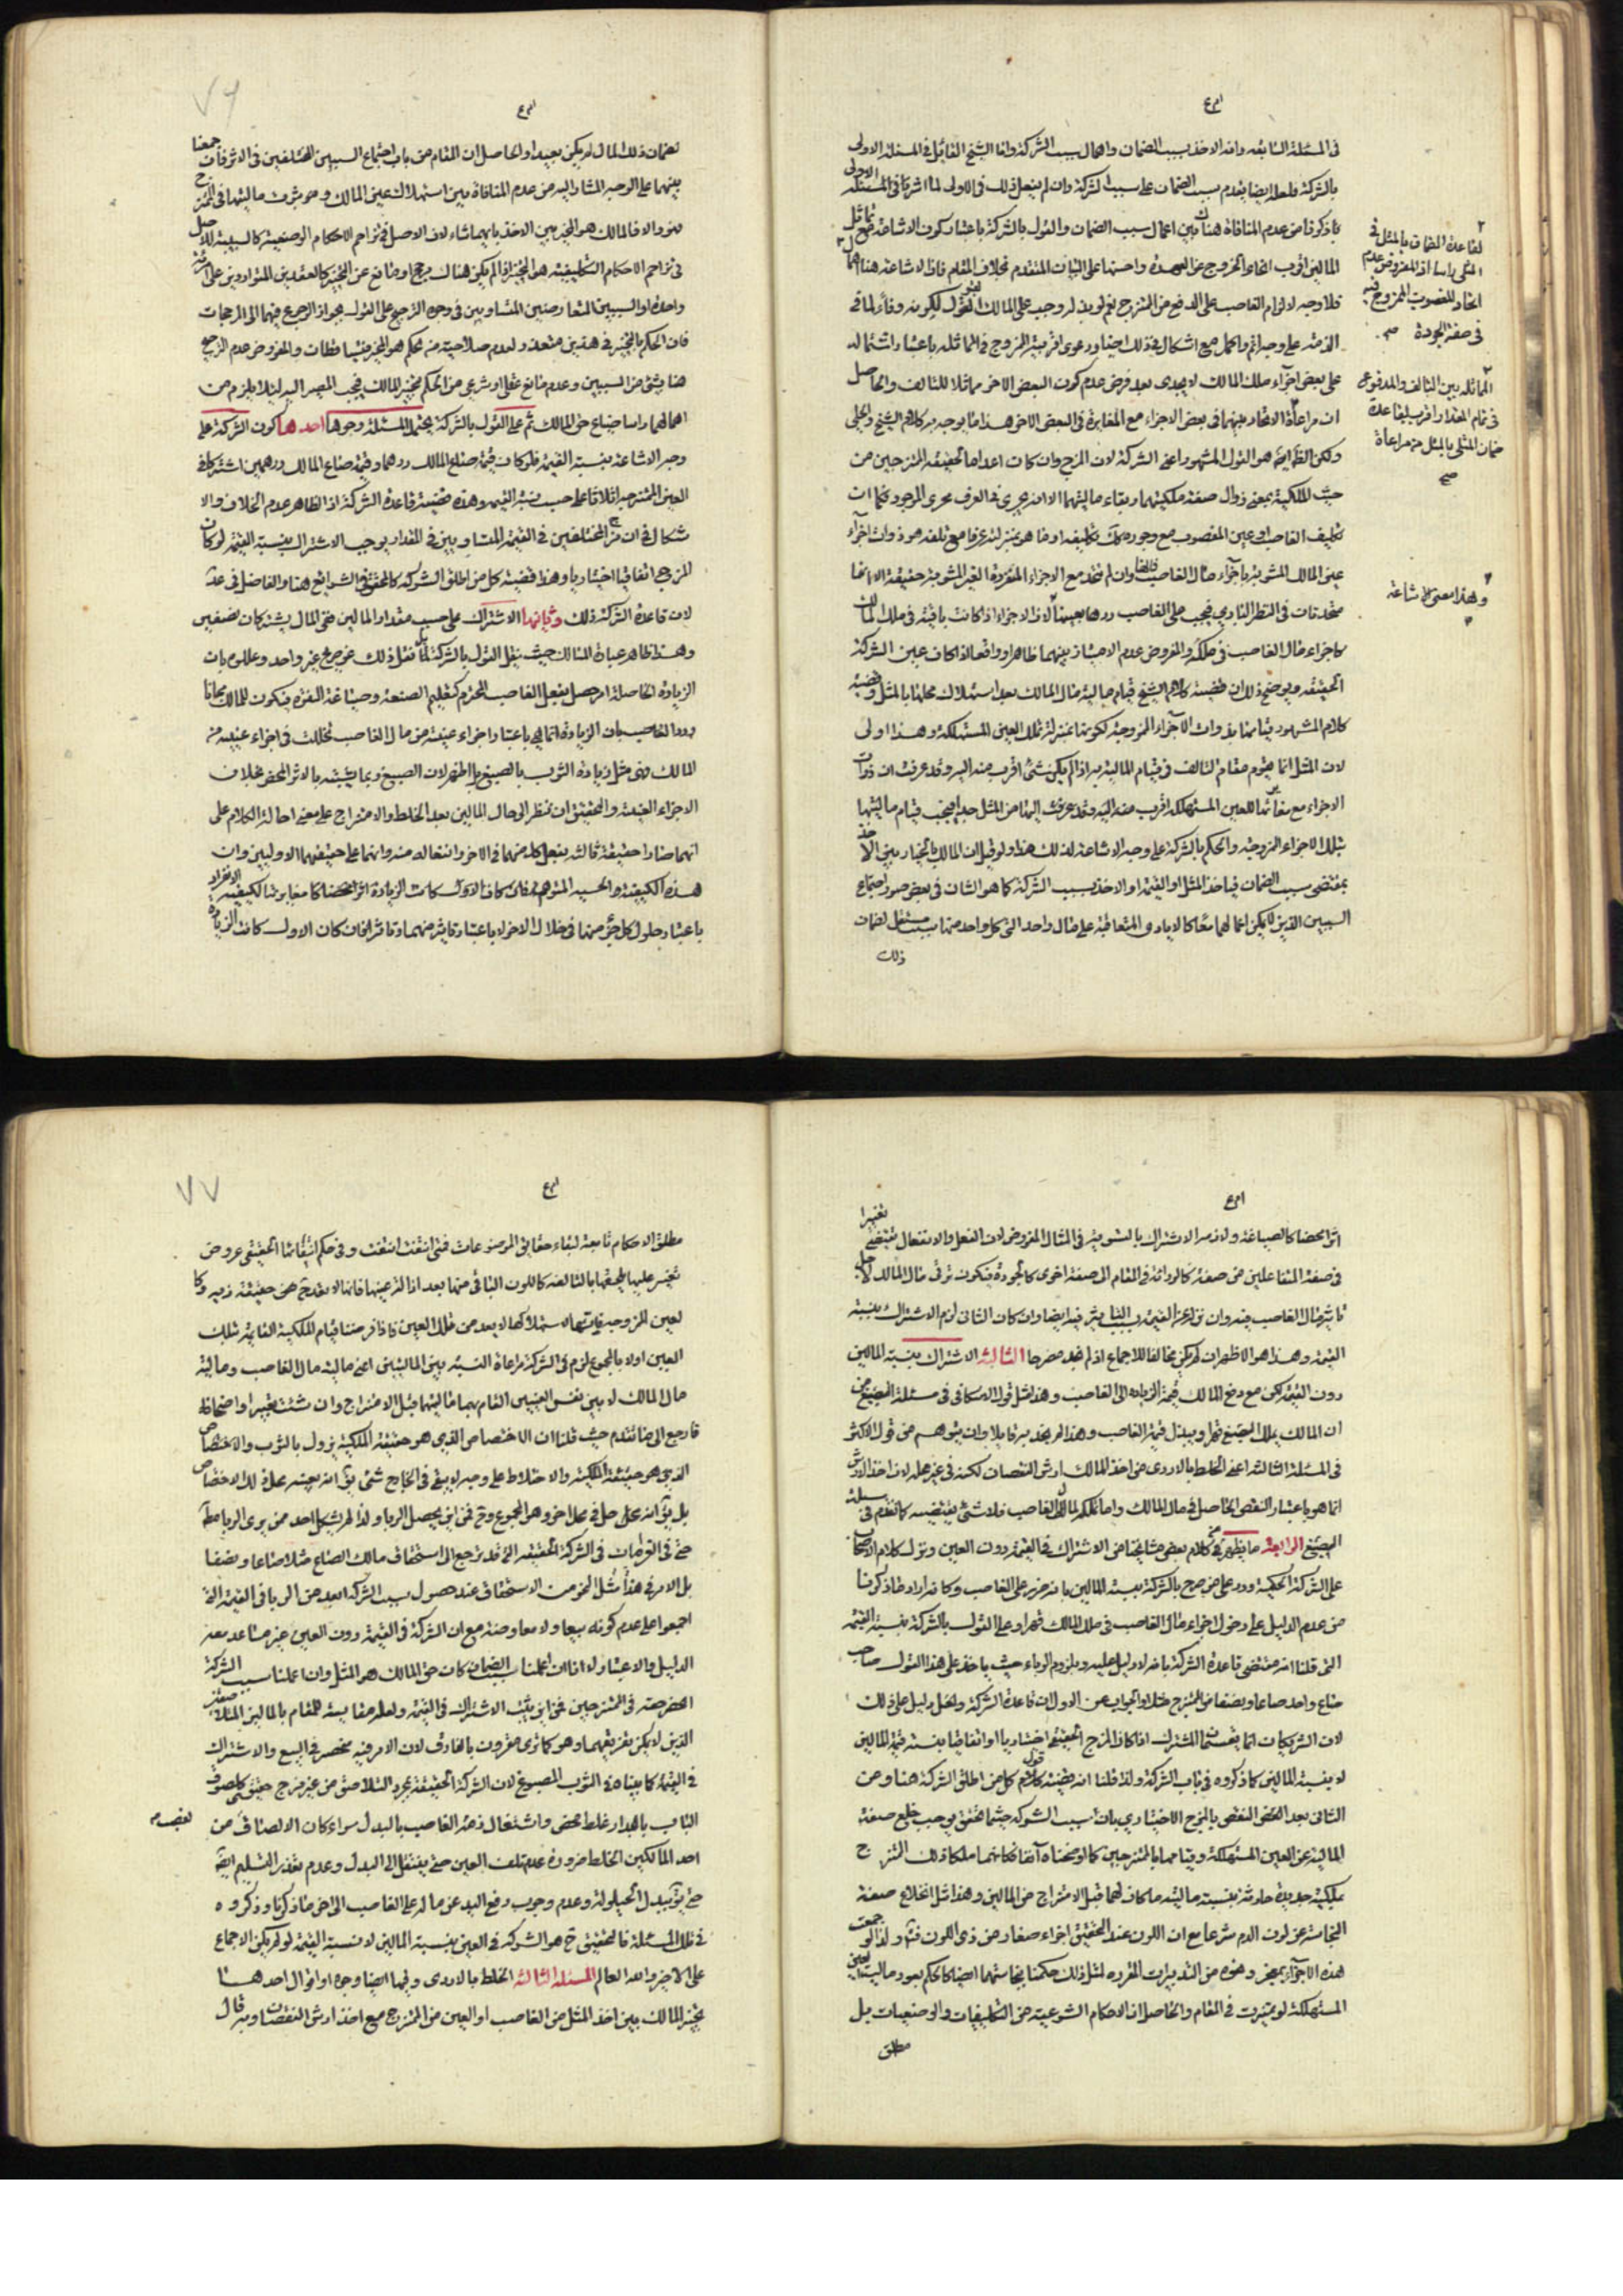 في المسئلة السابقه وانه الاخذ بسبب الضمان واهمال سبب الشركة واما الشيخ القائل في المسئلة الاولى
بالشركة فلعله ايضا يقدم سبب الضمان على سبب الشركة وان لم يفعل ذلك في الاولى لما اشرنا في المسئلة الاولى
ما ذكرنا من عدم المنافاة هناك بين اعمال سبب الضمان والقول بالشركة باعتبار كون الاشاعة مع تماثل
المالين اقرب انحاء الخروج عن العهدة واحسنها على البيان المتقدم بخلاف المقام فاذا لا اشاعة هنا
فلا وجه لالزام الغاصب على الدفع من الممتزج نعم لو بذله وجب على المالك القبول لكونه وفاء لما في
الذمة على وجه اتم واكمل مع اشكال في ذلك ايضا ودعوى اقربية الممزوج في المماثلة باعتبار اشتماله
على بعض اجزاء ملك المالك لا يجدى بعد فرض عدم كون البعض الاخر مماثلا للتالف والحاصل
ان مراعاة الاتحاد بينهما في بعض الاجزاء مع المغايرة في البعض الاخر هذا ما يوجه به كلام الشيخ والحلى
ولكن الظاهر هو القول المشهور اعنى الشركة لان المزج وان كان اعداما لحقيقة الممتزجين من
حيث الملكية بمعنى زوال صفة ملكيتهما وبقاء ماليتهما الا انه يجرى في العرف مجرى الموجود فكما ان
تكليف الغاصب رد عين المغصوب مع وجوده كك تكليفه رد ما هو بمنزلته عرفا مع تلفه هو ذوات اجزاء
عين المالك المشوبة باجزاء مال الغاصب فانها وان لم تتحد مع الاجزاء المفروزة الغير المشوبة حقيقة الا انها
متحدتان في النظر الثانوى فيجب على الغاصب ردها بعينها لان الاجزاء اذا كانت باقية في ملك المالك
كاجزاء مال الغاصب في ملكه والمفروض عدم الامتياز بينهما ظاهرا وواقعا لذا كان عين الشركة
الحقيقة ويوضح ذلك ان قضية كلام الشيخ قيام مالية مال المالك بعد استهلاك محلها بالمثل وقضية
كلام المشهور قيامها بذوات الاجزاء الممزوجة لكونها بمنزلة تلك العين المستهلكة وهذا اولى
لان المثل انما يقوم مقام التالف في قيام المالية به اذا لم يكن شئ اقرب منه اليه وقد عرفت ان ذوات
الاجزاء مع مغايرتها للعين المستهلكة اقرب منه اليه وقد عرفت انها من المثل جدا فيجب قيام ماليتها
بتلك الاجزاء الممزوجة والحكم بالشركة على وجه الاشاعة لذلك هذا ولو قيل ان المالك بالخيار بين الاخذ
بمقتضى سبب الضمان فياخذ المثل او القيمة او الاخذ بسبب الشركة كما هو الشان في بعض صور اجتماع
السببين الذين لا يمكن اعمالهما معا كالايادى المتعاقبة على مال واحد التى كل واحد منها سبب مستقل لضمان
ذلك
لقاعدة الضمان بالمثل في
المثلى راسا اذ المفروض عدم
اتحاد المغصوب الممزوج فيه
في صفة الجودة صح
المماثلة بين التالف والمدفوع
في تمام المقدار اقرب لقاعدة
ضمان المثلى بالمثل من مراعاة
صح
وهذا معنى الاشاعة
٧٦
لضمان ذلك المال لم يكن بعيدا والحاصل ان المقام من باب اجتماع السببين المختلفين في الاثر فان جمعنا
بينهما على الوجه المشار اليه من عدم المنافاة بين استهلاك عين المالك وصيرورة ماليتها في الممتزج
فهو والا فالمالك هو المخير بين الاخذ بايهما شاء لان الاصل في تزاحم الاحكام الوضعية كالسببية للاصل
في تزاحم الاحكام التكليفية هو التخيير اذا لم يكن هناك مرجح او مانع عن التخيير كالعقدين المتواردين على امرئة
واحدة او السببين المتعارضين المتساويين في وجوه الترجيح على القول بجواز الرجوع فيهما الى المرجحات
فان الحكم بالتخيير في هذين متعذر لعدم صلاحيته من يحكم هو المخير فيتساقطان والمفروض عدم الترجيح
هنا بشئ من السببين وعدم مانع عقلى او شرعى من الحكم بتخيير المالك فيجب المصير اليه لئلا يلزم من
اهمالهما راسا ضياع حق المالك ثم على القول بالشركة يحتمل المسئلة وجوها احدها كون الشركة على
وجه الاشاعة بنسبة القيمة فلو كان قيمة صاع المالك درهما وقيمة صاع المالك درهمين اشتركا في
العين الممتزجة اثلاثا على حسب نسبة القيمه وهذه قضية قاعدة الشركة اذ الظاهر عدم الخلاف والا
شكال في ان مزج المختلفين في القيمة المتساويين في المقدار يوجب الاشتراك بنسبة القيمة لو كان
المزج اتفاقيا اختياريا وهذا قضية كل من اطلق الشركه كالمحقق في الشرايع هنا والفاضل في عد
لان قاعدة الشركة ذلك وثانيها الاشتراك على حسب مقدار المالين ففى المثال يشتركان نصفين
وهذا ظاهر عبارة المسالك حيث نقل القول بالشركة ثم نقل ذلك عن صريح غير واحد وعللوه بان
الزيادة الحاصلة امر حصل بفعل الغاصب المحترم كتعليم الصنعة وصياغة النقرة فيكون للمالك مجانا
وردا للغاصب بان الزيادة انما هي باعتبار اجزاء عينية من مال الغاصب تخللت في اجزاء عينية من
المالك فهى مثل زيادة الثوب بالصبغ بل اظهر لان الصبغ ربما يشتبه بالاثر المحض بخلاف
الاجزاء العينية والتحقيق ان ننظر الى حال المالين بعد الخلط والامتزاج على معنى احالة الكلام على
انهما صارا حقيقة ثالثة بفعل كل منهما في الاخر وانفعاله منه وانهما على حقيقتهما الاوليين وان
هذه الكيفية الحسية المتوهمة فان كان الاول كانت الزيادة اثرا محضا كما مغايرتها لكيفية الانفراد
باعتبار حلول كل جزء منهما في خلال الاخر لا باعتبار تاثير منهما وتاثر فان كان الاول كانت الزيادة
اثرا محضا كالصياغة ولازمه الاشتراك بالسوية في المثال المفروض لان الفعل والانفعال يقتضى تغييرا
في صفة المتفاعلين من صفة كالرداءة في المقام الى صفة اخرى كالجودة فيكون ترقى مال المالك لاجل
تاثير مال الغاصب فيه وان تنزل عن القيمة بسبب التاثير فيه ايضا وان كان الثاني لزم الاشتراك بنسبة
القيمة وهذا هو الاظهر ان لم يكن مخالفا للاجماع اذ لم نجد مصرحا الثالثة الاشتراك بنسبة المالين
دون القيمة لكن مع دفع المالك قيمة الزيادة الى الغاصب وهذا مثل قول الاسكافي في مسئلة الصبغ من
ان المالك يملك الصبغ قهرا ويبذل قيمة الغاصب وهذا لم نجد به قايلا وان يتوهم من قول الاكثر
في المسئلة الثالثة اعنى الخلط بالاردى من اخذ المالك ارش النقصان لكنه في غير محله لان اخذ الارش
انما هو باعتبار النقص الحاصل في مال المالك واما تملكه لمال الغاصب فلا شئ يقتضيه كما تقدم في مسئلة
الصبغ الرابعة ما يظهر من كلام بعض مشايخنا من الاشتراك في القيمة دون العين ونزل كلام الاصحاب
على الشركة الحكمية ورد على من صرح بالشركة بنسبة المالين بانه ضرر على الغاصب وكانه اراد ما ذكرنا
من عدم الدليل على دخول اجزاء مال الغاصب في ملك المالك قهرا وعلى القول بالشركة بنسبة القيمة
التى قلنا انه مقتضى قاعدة الشركة بانه لا دليل عليه وبلزوم الرباء حيث ياخذ على هذا القول صاحب
صاع واحد صاعا ونصفا من الممتزج مثلا والجواب عن الاول ان قاعدة الشركة ولعل دليل على ذلك
لان الشريكان انما يقسمان المشترك اذا كان المزج الحقيقى اختياريا او اتفاقيا بنسبة قيمة المالين
لا بنسبة المالين كما ذكروه في باب الشركة ولذا قلنا انه قضية كلام كل من اطلق الشركة هنا وعن
الثانى بعد الغض النقض بالمزج الاختيارى بان سبب الشركة حيثما تحقق يوجب خلع صفة
المالية عن العين المستهلكة وقيامها بالممتزجين كما اوضحناه آنفا فكانهما ملكا ذلك الممتزج
بملكية جديدة حادثة بنسبة مالية ما كان لهما قبل الامتزاج من المالين وهذا مثل انخلاع صفة
النجاسة عن لون الدم شرعا مع ان اللون عند التحقيق اجزاء صغار من ذى اللون فثم ولذا لو جمعت
هذه الاجزاء بمبخر ونحوه من التدبيرات المقررة لمثل ذلك حكمنا بنجاستها ايضا كالحكم بعود مالية العين
المستهلكة لو تميزت في المقام والحاصل ان الاحكام الشرعية من التكليفيات والوضعيات بل
مطلق
٧٧
مطلق الاحكام تابعة لبقاء حقايق الموضوعات فمتى انتفت انتفت وفي حكم انتفائها الحقيقى عروض
تغيير عليها يلحقها بالتالفة كاللون الباقى منها بعد ازالة عينها فانها لا تقدح من حقيقة ذيه وكا
لعين الممزوجة فانها لاستهلاكها لا يعد من تلك العين فاذا فرضنا قيام الملكية القايمة بتلك
العين اولا بالمجموع لزم في الشركة مراعاة النسبة بين المالين اعنى مالية مال الغاصب ومالية
مال المالك لا بين نفس العينين القائم بهما ماليتهما قبل الامتزاج وان شئت تغييرا واضحا له
فارجع الى ما تقدم حيث قلنا ان الاختصاص الذى هو حقيقة الملكية يزول بالثوب والاختصاص
الذى هو حقيقة الملكية والاختلاط على وجه لا يبقى في الخارج شئ يق انه بعينه محل لذلك الاختصاص
بل يق انه محل حل في محل اخر وهو المجموع وح فمن اين يحصل الربا ولذا لم يشكل احد ممن يرى الربا مط
حتى في الغرامات في الشركة الحقيقية التى قد يرجع الى استحقاق مالك الصاع مثلا صاعا ونصفا
بل الامر في هذا مثل النحو من الاستحقاق عند حصول سبب الشركة ابعد من الربا في القيمة التى
اجمعوا على عدم كونه بيعا ولا معاوضة مع ان الشركة في القيمة دون العين غير مساعد معه
الدليل والاعتبار لانا ان اعملنا سبب الضمان كان حق المالك هو المثل وان اعملنا سبب الشركة
المفروضة في الممتزجين فمن اين يثبت الاشتراك في القيمة ولعله مقايسة للمقام بالمالين المتلاصقين
الذين لا يمكن تفريقهما وهو كما ترى مقرون بالفارق لان الامر فيه منحصر في البيع والاشتراك
في القيمة كما بيناه في الثوب المصبوغ لان الشركة الحقيقة بمجرد التلاصق من غير مزج حقيقى كلصوق
الباب بالجدار غلط محض واشتغال ذمة الغاصب بالبدل سواء كان الالصاق من
احد المالكين الخلط ضرورة عدم تلف العين حتى ينتقل الى البدل وعدم تعذر التسليم ايضا
حتى يق ببدل الحيلولة وعدم وجوب رفع اليد عن ماله على الغاصب الى اخر ما ذكرنا وذكروه
في تلك المسئلة فالتحقيق ح هو الشركة في العين بنسبة المالين لا نسبة القيمة لو لم يكن الاجماع
على الاخير والله العالم المسئلة الثالثة الخلط بالاردى وفيها ايضا وجوه او اقوال احدها
تخيير المالك بين اخذ المثل من الغاصب او العين من الممتزج مع اخذ ارش النقصان وبه قال